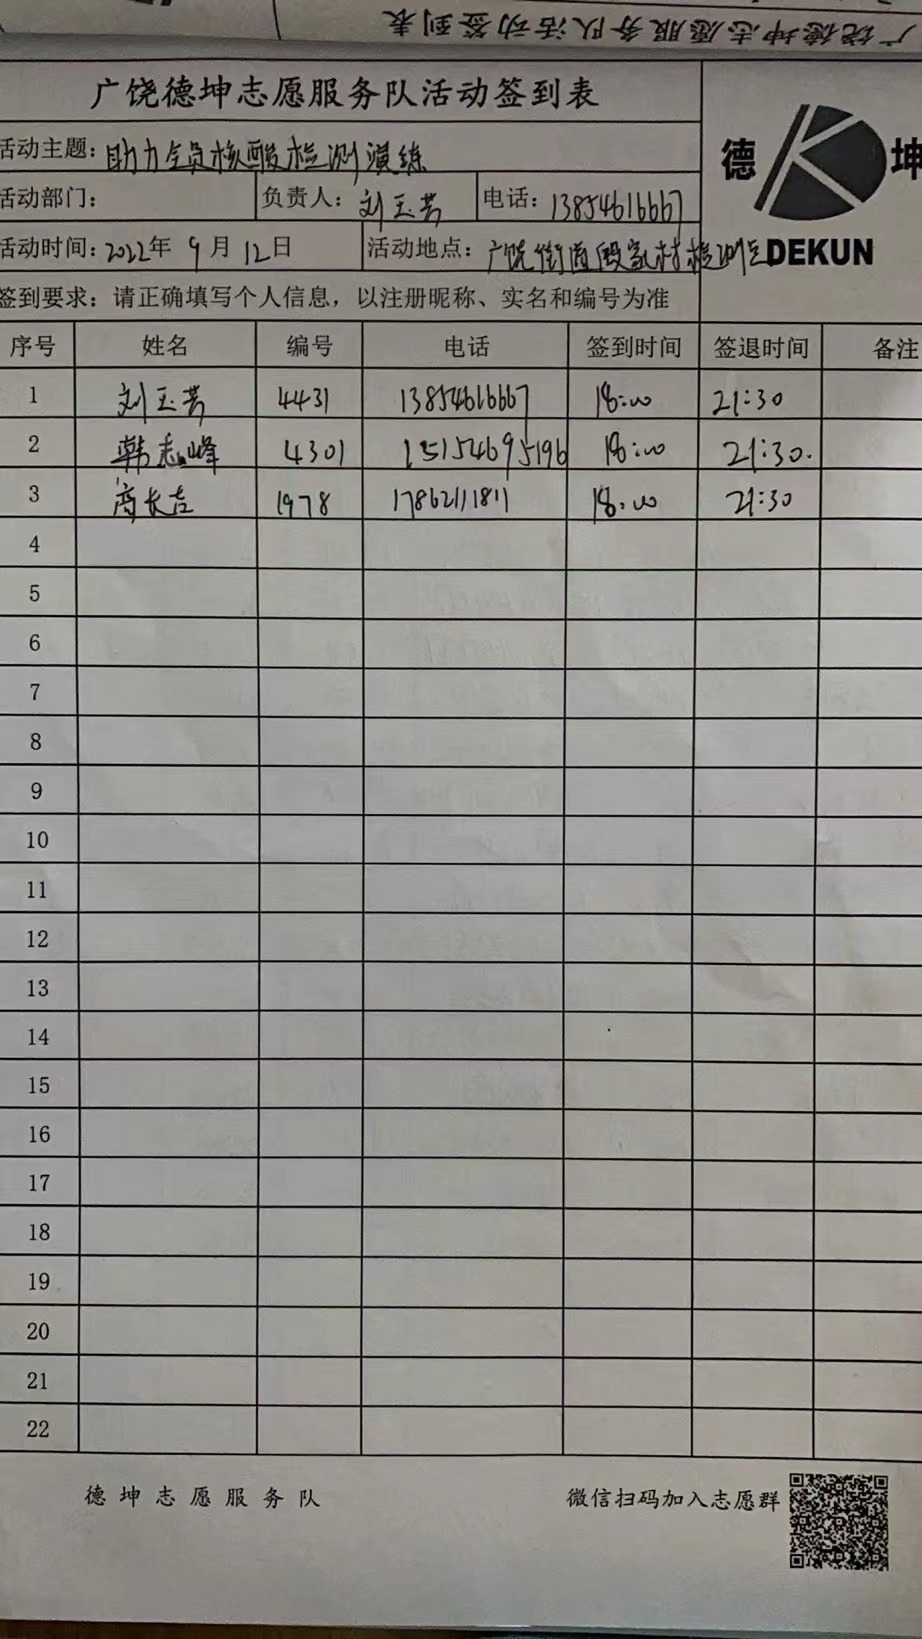 广饶德坤志愿服务队活动签到表
广饶德坤志愿服务队活动签到表
活动主题：助力全员核酸检测演练
德 坤
活动部门： 负责人：刘玉芳 电话：13854616667
活动时间：2022年 9月 12日 活动地点：广饶街道殷家村检测点
DEKUN
签到要求：请正确填写个人信息，以注册昵称、实名和编号为准
序号 姓名 编号 电话 签到时间 签退时间 备注
1 刘玉芳 4431 13854616667 18:00 21:30
2 韩志峰 4301 15154695196 18:00 21:30.
3 长吉 1978 17862111811 18:00 21:30
4
5
6
7
8
9
10
11
12
13
14
15
16
17
18
19
20
21
22
德坤志愿服务队 微信扫码加入志愿群